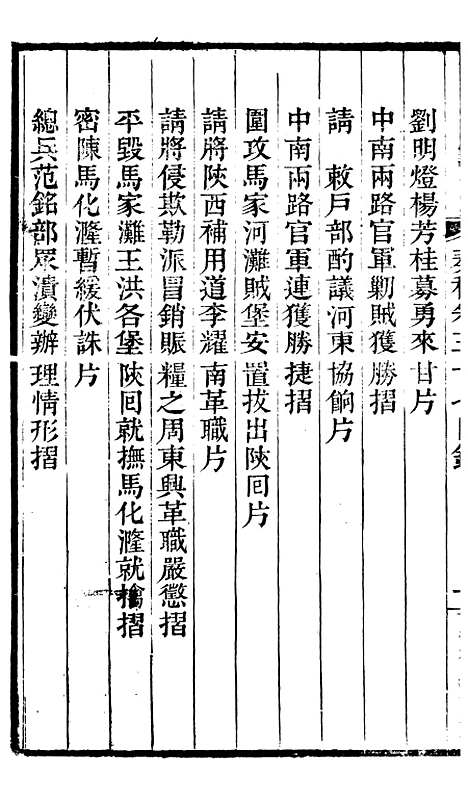 劉明燈楊芳桂募勇來甘片
中南兩路官軍勦賊獲勝摺
請　敕戶部酌議河東協餉片
中南兩路官軍連獲勝捷摺
圍攻馬家河灘賊堡安置拔出陝囘片
請將陝西補用道李耀南革職片
請將侵欺勒派冒銷賑糧之周東興革職嚴懲摺
平毀馬家灘王洪各堡陝囘就撫馬化漋就擒摺
密陳馬化漋暫緩伏誅片
總兵范銘部眾潰變辦理情形摺